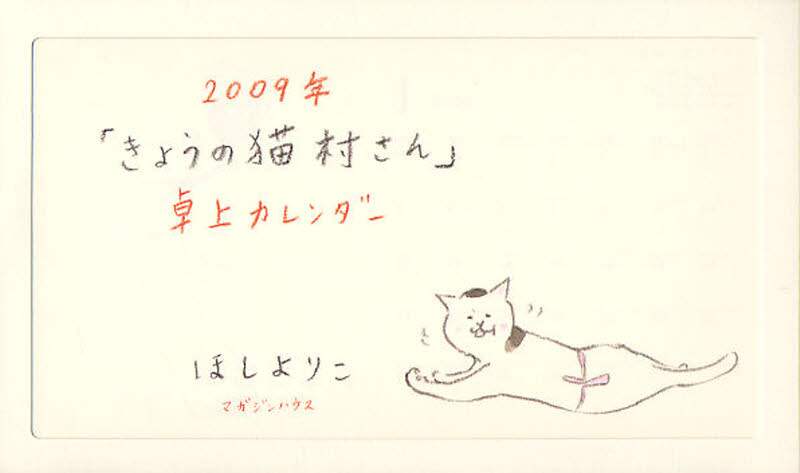 2009年
「きょうの猫村さん」
卓上カレンダー
ほしよりこ
マガジンハウス